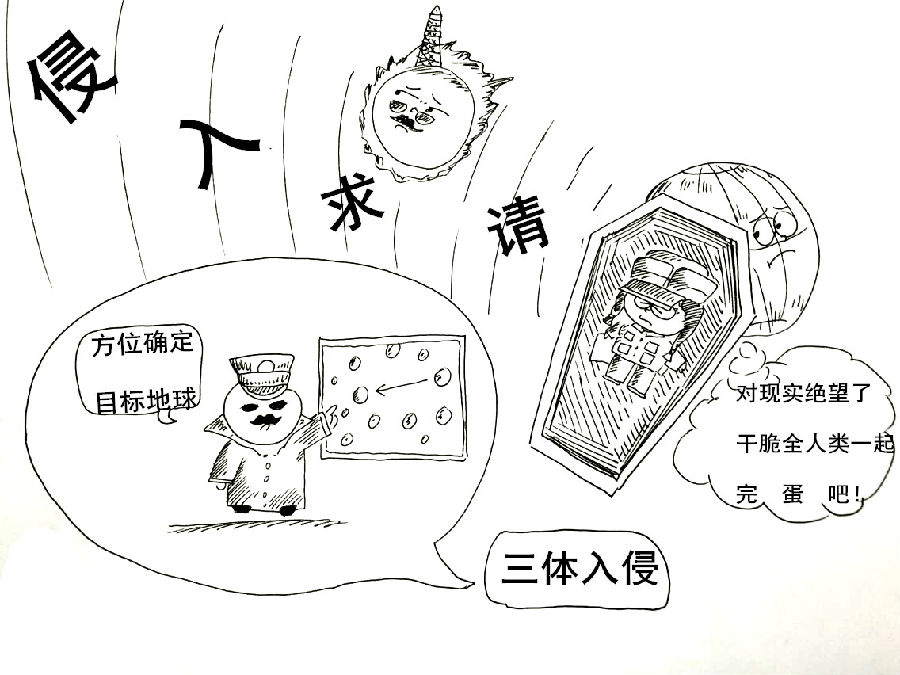 侵入求请
方位确定
目标地球
对现实绝望了
干脆全人类一起
完 蛋 吧!
三体入侵